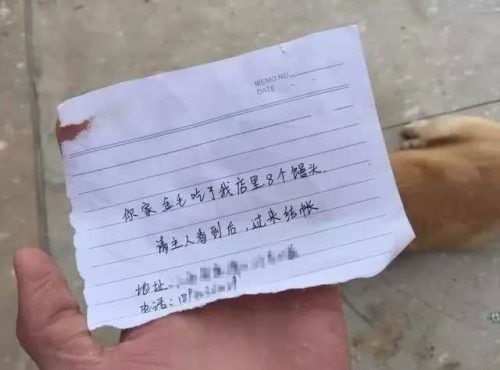 MEMO NO.
DATE
你家金毛吃了我店里8个馒头.
请主人看到后,过来结帐
地址
电话:18